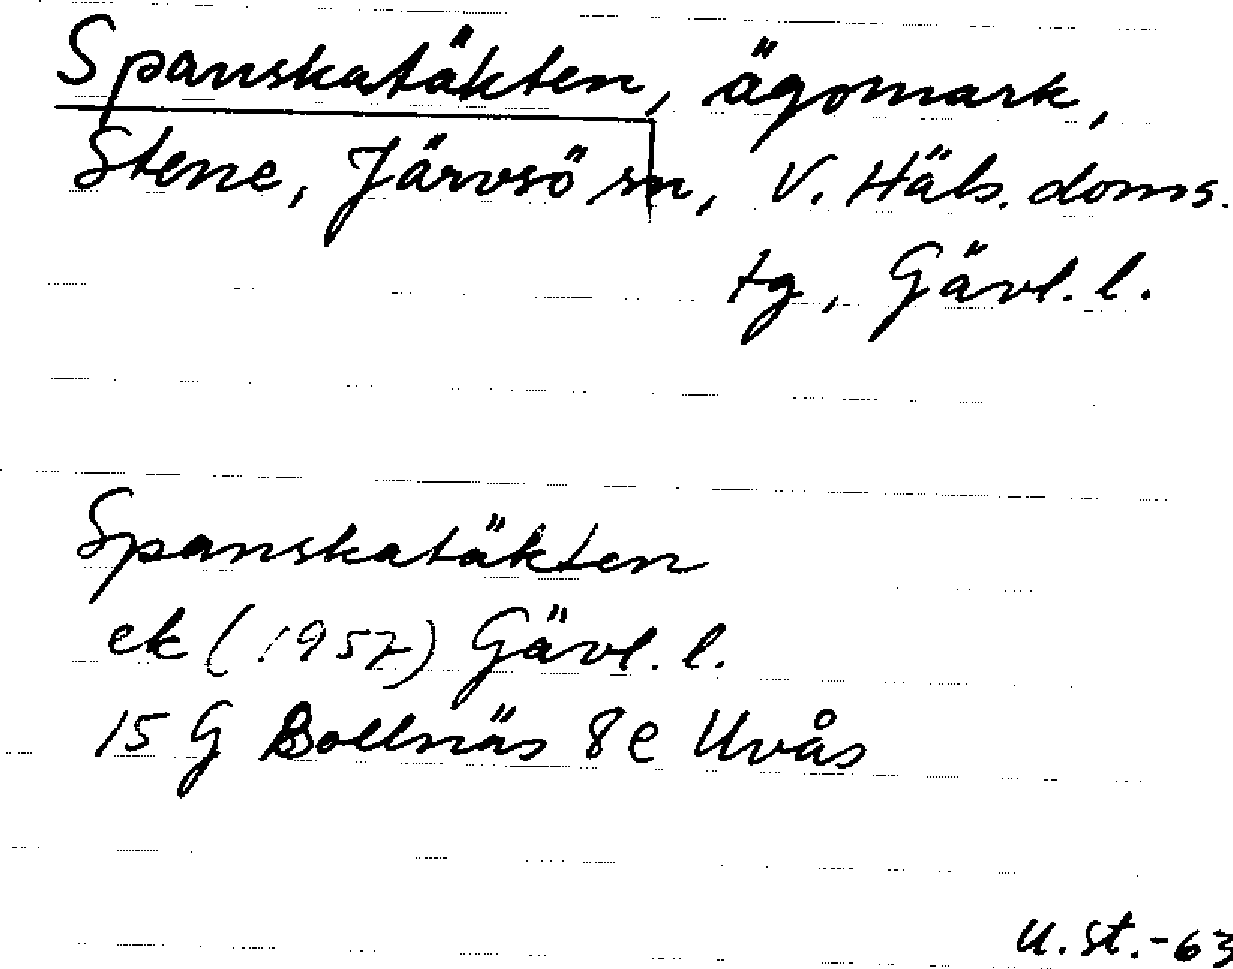 Spanskatäkten, ägomark,
Stene, Järvsö sn, V. Häls. doms.
tg, Gävl. l.
Spanskatäkten
ek (1957) Gävl. l.
15 G Bollnäs 8e Uvås
U. St. -63